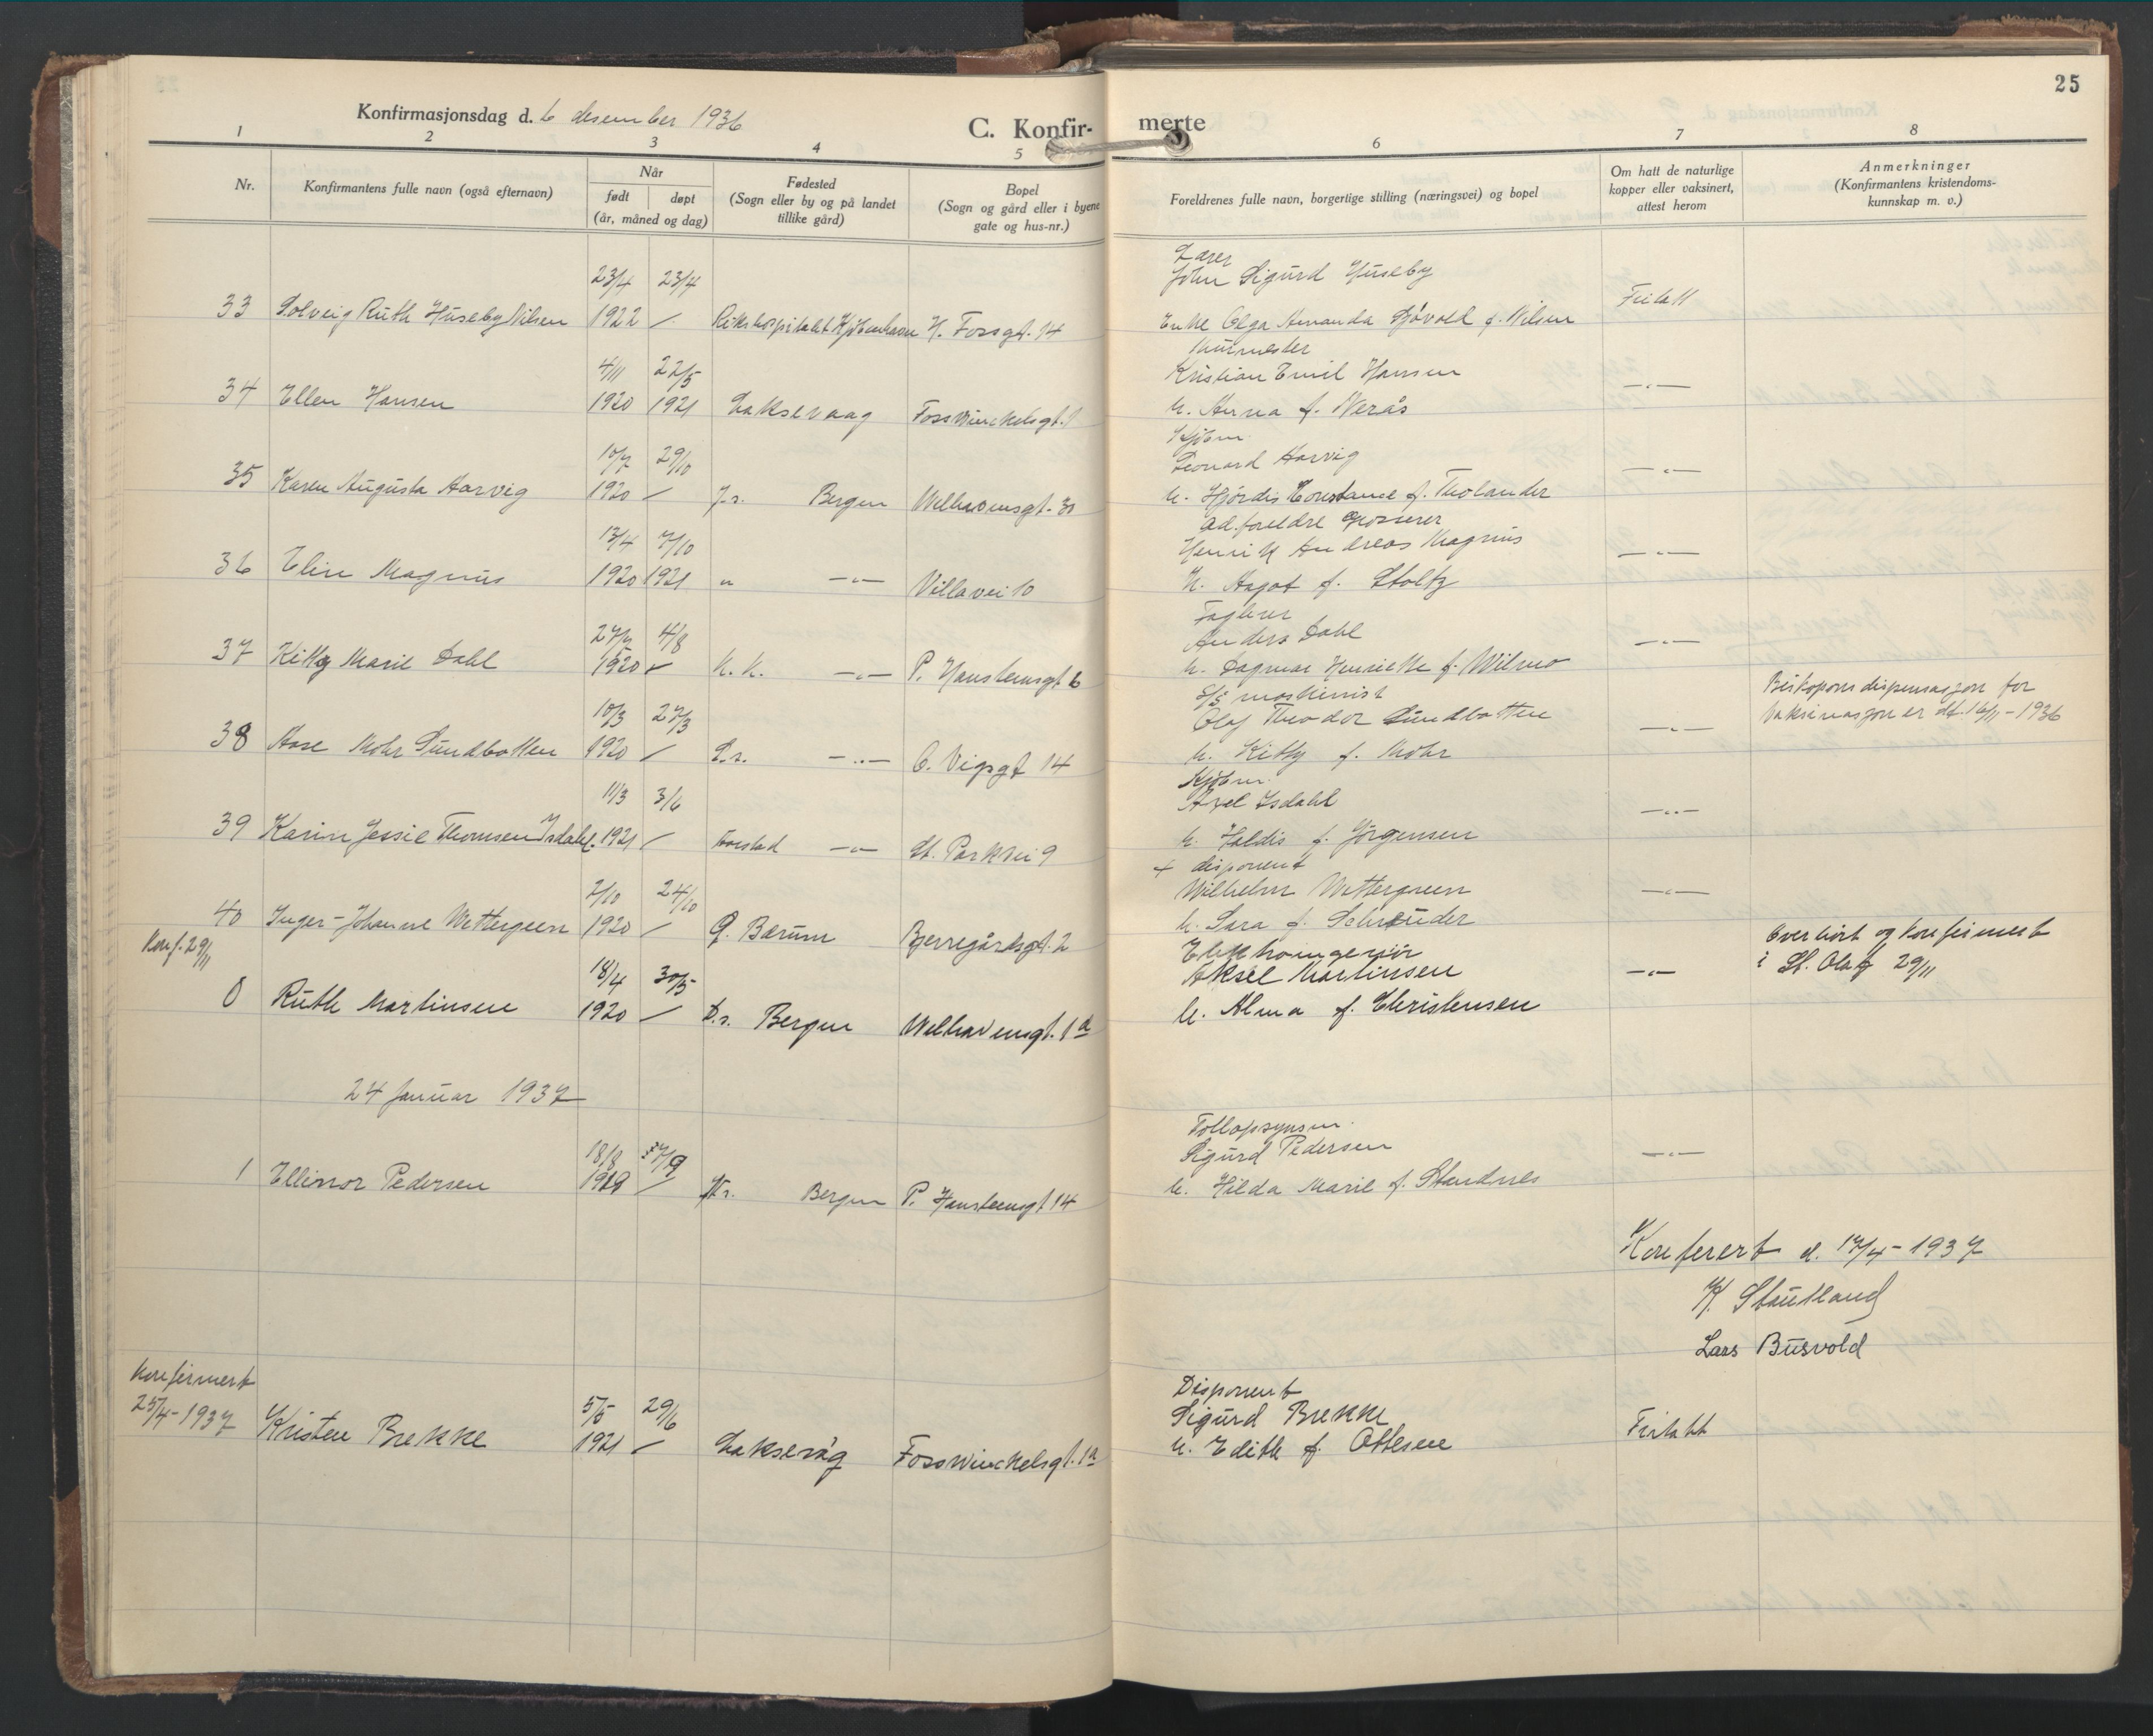 25
Konfirmasjonsdag d. 6 desember 1936
C. Konfir- merte
1 2 3 4 5 6 7 8
Nr.
Konfirmantens fulle navn (også efternavn)
Når
født døpt
(år, måned og dag)
Fødested
(Sogn eller by og på landet
tillike gård)
Bopel
(Sogn og gård eller i byene
gate og hus-nr.)
Foreldrenes fulle navn, borgerlige stilling (næringsvei) og bopel
Om hatt de naturlige
kopper eller vaksinert,
attest herom
Anmerkninger
(Konfirmantens kristendoms-
kunnskap m. v.)
Lærer
23/4 23/4 John Sigurd Huseby
33 Solveig Ruth Huseby Nilsen 1922 / Rikshospitalet Kjöbenhavn H. Fossgt. 14 Enke Olga Amanda f. Nilsen Fritatt
Murmester
4/11 22/5 Kristian Emil Hansen
34 Ellen Hansen 1920 1921 Laksevaag Fosswinckelsgt. 1 h. Anna f. Nerås —"—
Kjöbm.
10/7 29/10 Leonard Harvig
35 Karen Augusta Harvig 1920 / J.s. Bergen Welhavensgt. 30 h. Hjördis Konstanse f. Tholander —"—
Ad.foreldre Grosserer
13/4 7/10 Henrik Andreas Magnus
36 Elin Magnus 1920 1921 " —"— Villavei 10 h. Aagot f. Stoltz —"—
Faglærer
27/7 4/8 Anders Dahl
37 Kitty Marie Dahl 1920 / N.K. —"— P. Hansteensgt 6 h. Dagmar Henriette f. Wilmo —"—
S/S maskinist
10/3 27/3 Olaf Theodor Sundbotten
38 Aase Mohr Sundbotten 1920 / D.s. —"— O. Vigsgt 14 h. Kitty f. Mohr —"—
Biskopens dispensasjon for
Vaksinasjon er dat. 16/11-1936
Kjöbm.
11/3 3/6 Axel Isdahl
39 Karin Jessie Thomsen Isdahl. 1921 / Årstad —"— St. Parkvei 9 h. Haldis f. Jörgensen —"—
+ disponent
2/10 24/10 Wilhelm Wettergreen
40 Inger-Johanne Wettergreen 1920 / Ø. Bærum Bjerregårdsgt. 2 h. Sara f. Schrøuder —"—
Konf. 29/11
Elektroingeniör
18/4 30/5 Aksel Martinsen
0 Ruth Martinsen 1920 / D.s. Bergen Welhavensgt. 1a h. Alma f. Christensen —"—
Overhört og konfirmert
i St. Olaf 29/11
24 Januar 1937
Tollopsynsm.
18/8 27/9 Sigurd Pedersen
1 Ellinor Pedersen 1919 / Bergen P. Hansteensgt 14 h. Hilda Marie f. Strandnes —"—
Konferert d. 17/4-1937
K. Stautland
Lars Busvold
Konfirmert
25/4-1937
Disponent
5/5 29/6 Sigurd Brekke
Kristen Brekke 1921 / Laksevåg Fosswinckelsgt. 1a h. Edith f. Ottesen Fritatt